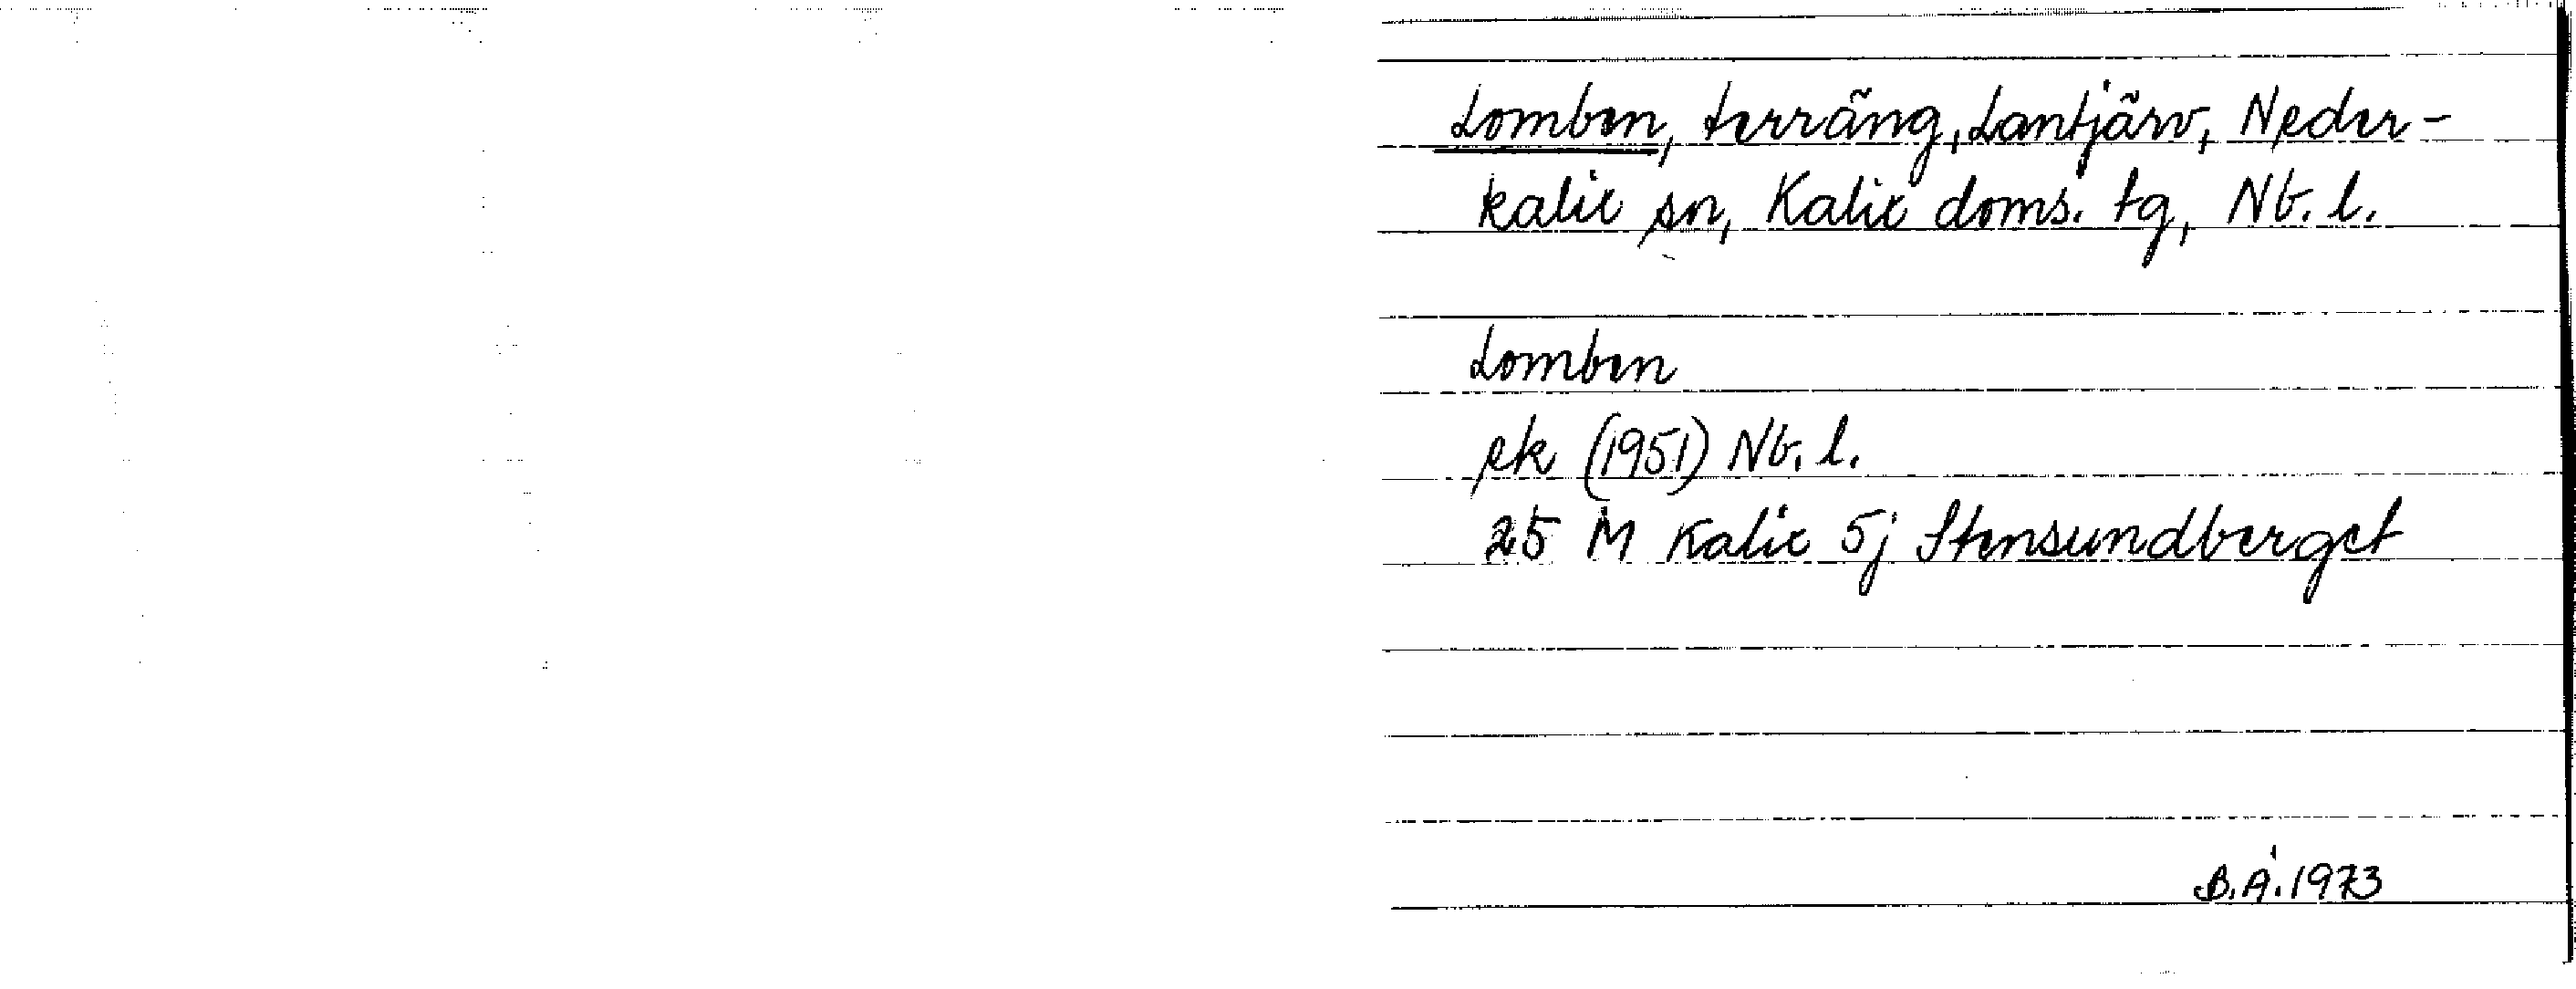 Lomben, terräng, Lantjärv, Neder-
kalix sn, Kalix doms. tg, Nb. l.
Lomben
ek (1951) Nb. l.
25 M Kalix 5j Stensundberget
B.Å. 1973